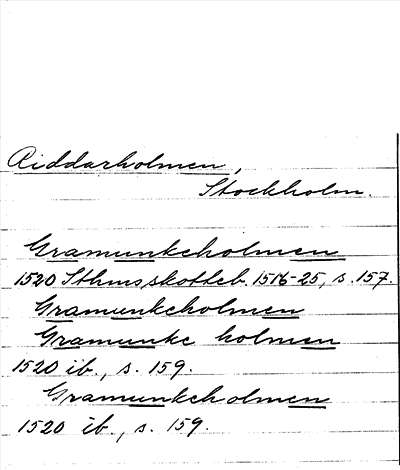 Riddarholmen,
Stockholm.
Gramunkeholmen
1520 Sthms skotteb. 1516-25, s. 157.
Gramunkeholmen
Gramunke holmen
1520 ib., s. 159.
Gramunkeholmen
1520 ib., s. 159.